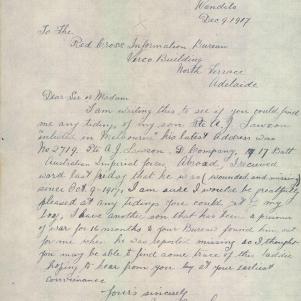 Wandilo
Dec 9. 1917
To The
Red Cross Information Bureau
Verco Building
North Terrace
Adelaide
Dear Sir or Madam
I am writing this to see if you could find
me any tidings of my son Pte A. J. Lawson
enlisted in Melbourne his latest address was
No 2719. Pte A. J. Lawson. D. Company, 17 Batt
Australian Imperial force, Abroad, I received
word last friday that he is (wounded and missing)
since Oct 9. 1917, I am sure I would be greatfully
pleased at any tidings you could get of my
boy, I have another son that has been a prisoner
of war for 16 months & your Bureau found him out
for me when he was reported missing so I thought
you may be able to find some trace of this laddie
hoping to hear from you by at your earliest
convinance
yours sincerely